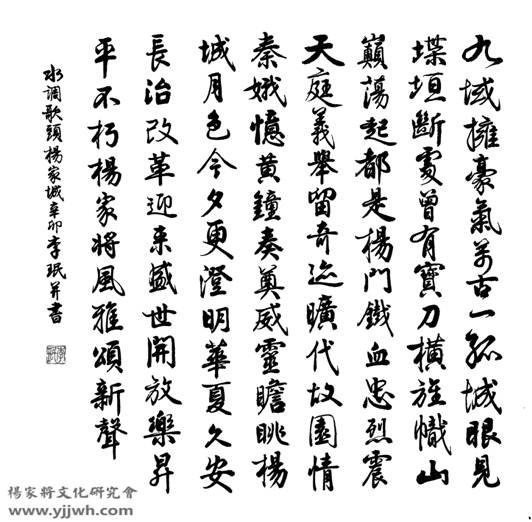 九域擁豪氣萬古一孤城眼見
堞垣斷處曾有寶刀橫旌幟山
巔蕩起都是楊門鐵血忠烈震
天庭義舉留奇迹曠代故園情
秦娥憶黃鐘奏奠威靈瞻眺楊
城月色今夕更澄明華夏久安
長治改革迎来盛世開放樂昇
平不朽楊家將風雅頌新聲
水調歌頭楊家城辛卯李珉并書
楊家將文化研究會
www.yjjwh.com